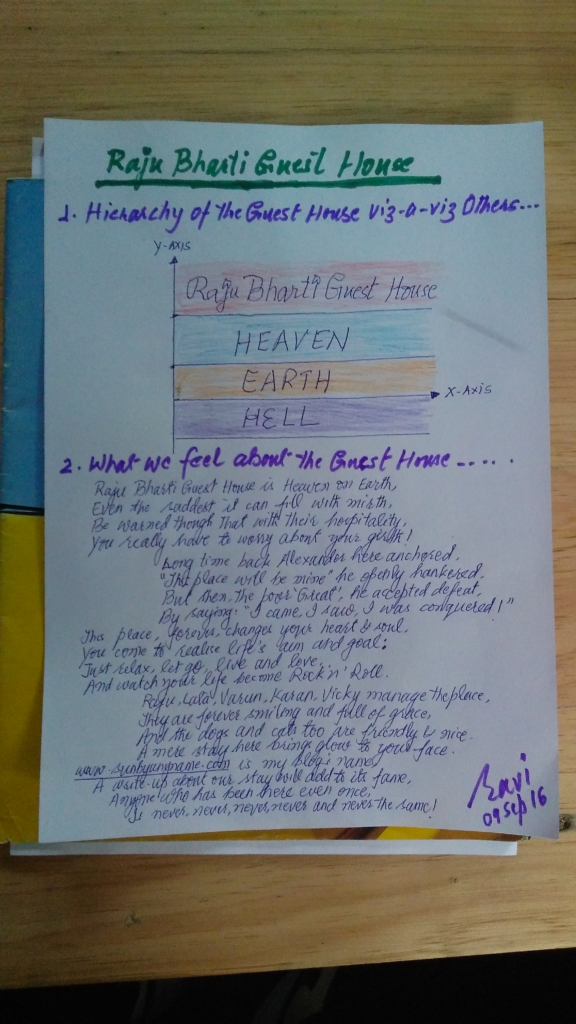 Raju Bharti Guest House
1. Hierarchy of the Guest House viz-a-viz Others...
Y-AXIS
Raju Bharti Guest House
HEAVEN
EARTH
X-AXIS
HELL
2. What we feel about the Guest House .....
Raju Bharti Guest House is Heaven on Earth,
Even the saddest it can fill with mirth,
Be warned though that with their hospitality,
You really have to worry about your girth!
Long time back Alexander here anchored,
"This place will be mine" he openly hankered,
But then, the poor 'Great', he accepted defeat,
By saying: "I came, I saw, I was conquered!"
This place, forever, changes your heart & soul,
You come to realise life's aim and goal:
Just relax, let go, live and love,
And watch your life become Rock n' Roll.
Raju, Lala, Varun, Karan, Vicky manage the place,
They are forever smiling and full of grace,
And the dogs and cats too are friendly & nice.
A mere stay here brings glow to your face.
www.sunbyanyname.com is my blog's name,
A write-up about our stay will add to its fame,
Anyone who has been there even once,
Is never, never, never, never and never the same!
Ravi
09 Sep 16